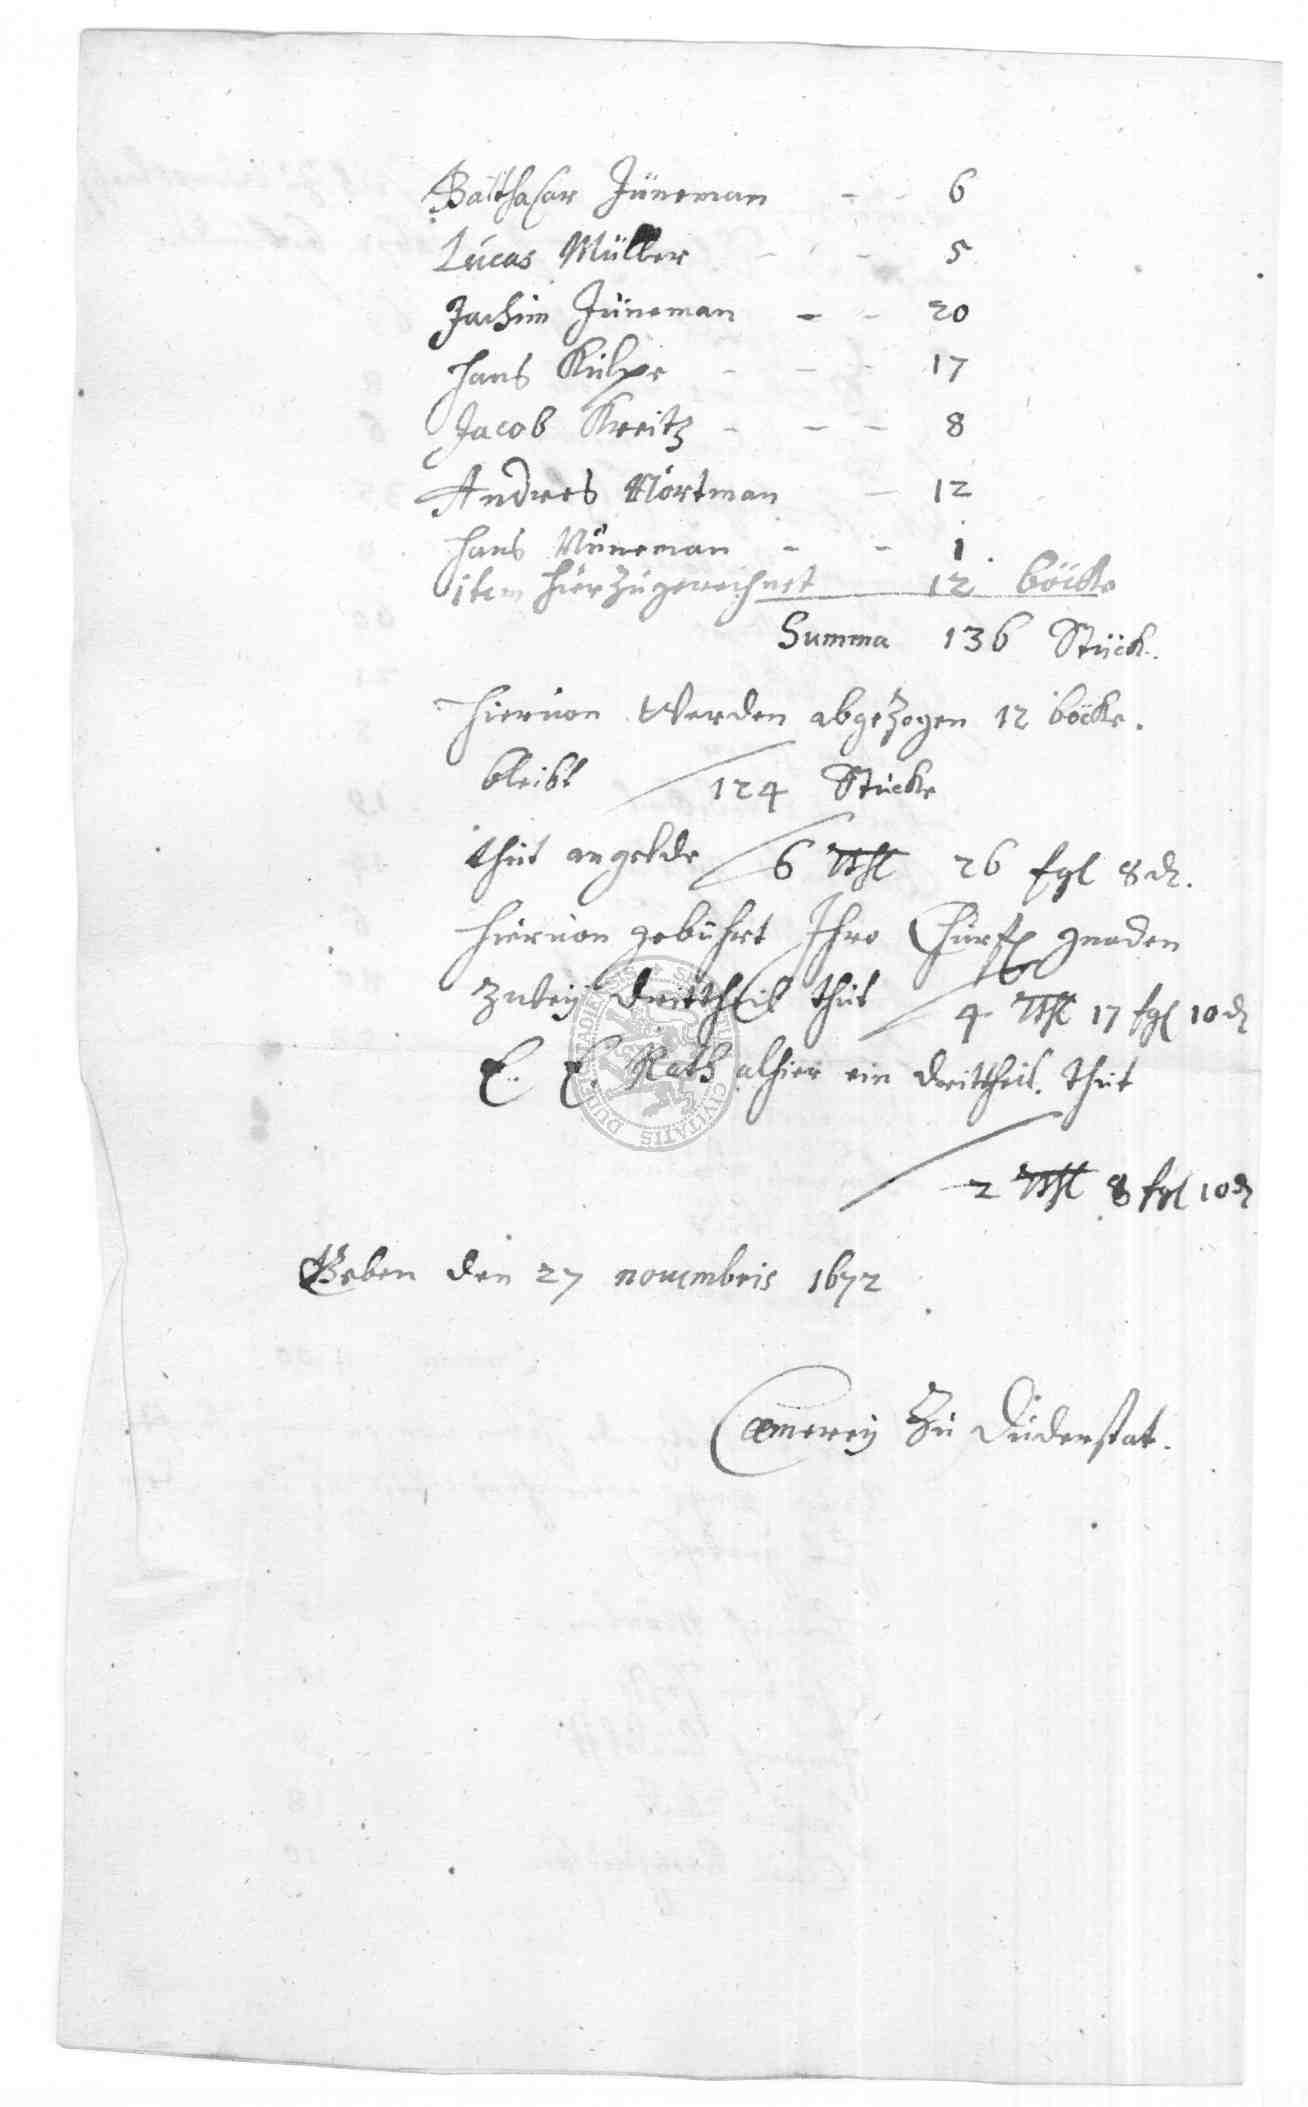 Balthasar Jüneman - - 6
Lucas Müller - - 5
Jachim Jüneman - - 20
Hans Külpe - - - 17
Jacob Kreitz - - - 8
Andres Nörtman - 12
Hans Nüneman - - 1.
item hierzu gerechnet 12 böcke
Summa 136 Stück.
Hieruon Werden abgezogen 12 böcke.
bleibt / 124 Stücke
thut angelde / 6 Rthl 26 fgl 8 d.
Hieruon gebührt Ihro Churfl gnaden
zwey dritttheil thut / 4 Rthl 17 fgl 10 d
E. E. Rath alhier ein dritttheil. thut
/ 2 Rthl 8 fgl 10 d
Geben den 27 nouembris 1672
Cämerey Zu Duderstat.
SIGILLUM CIVITATIS DUDERSTADIENSIS